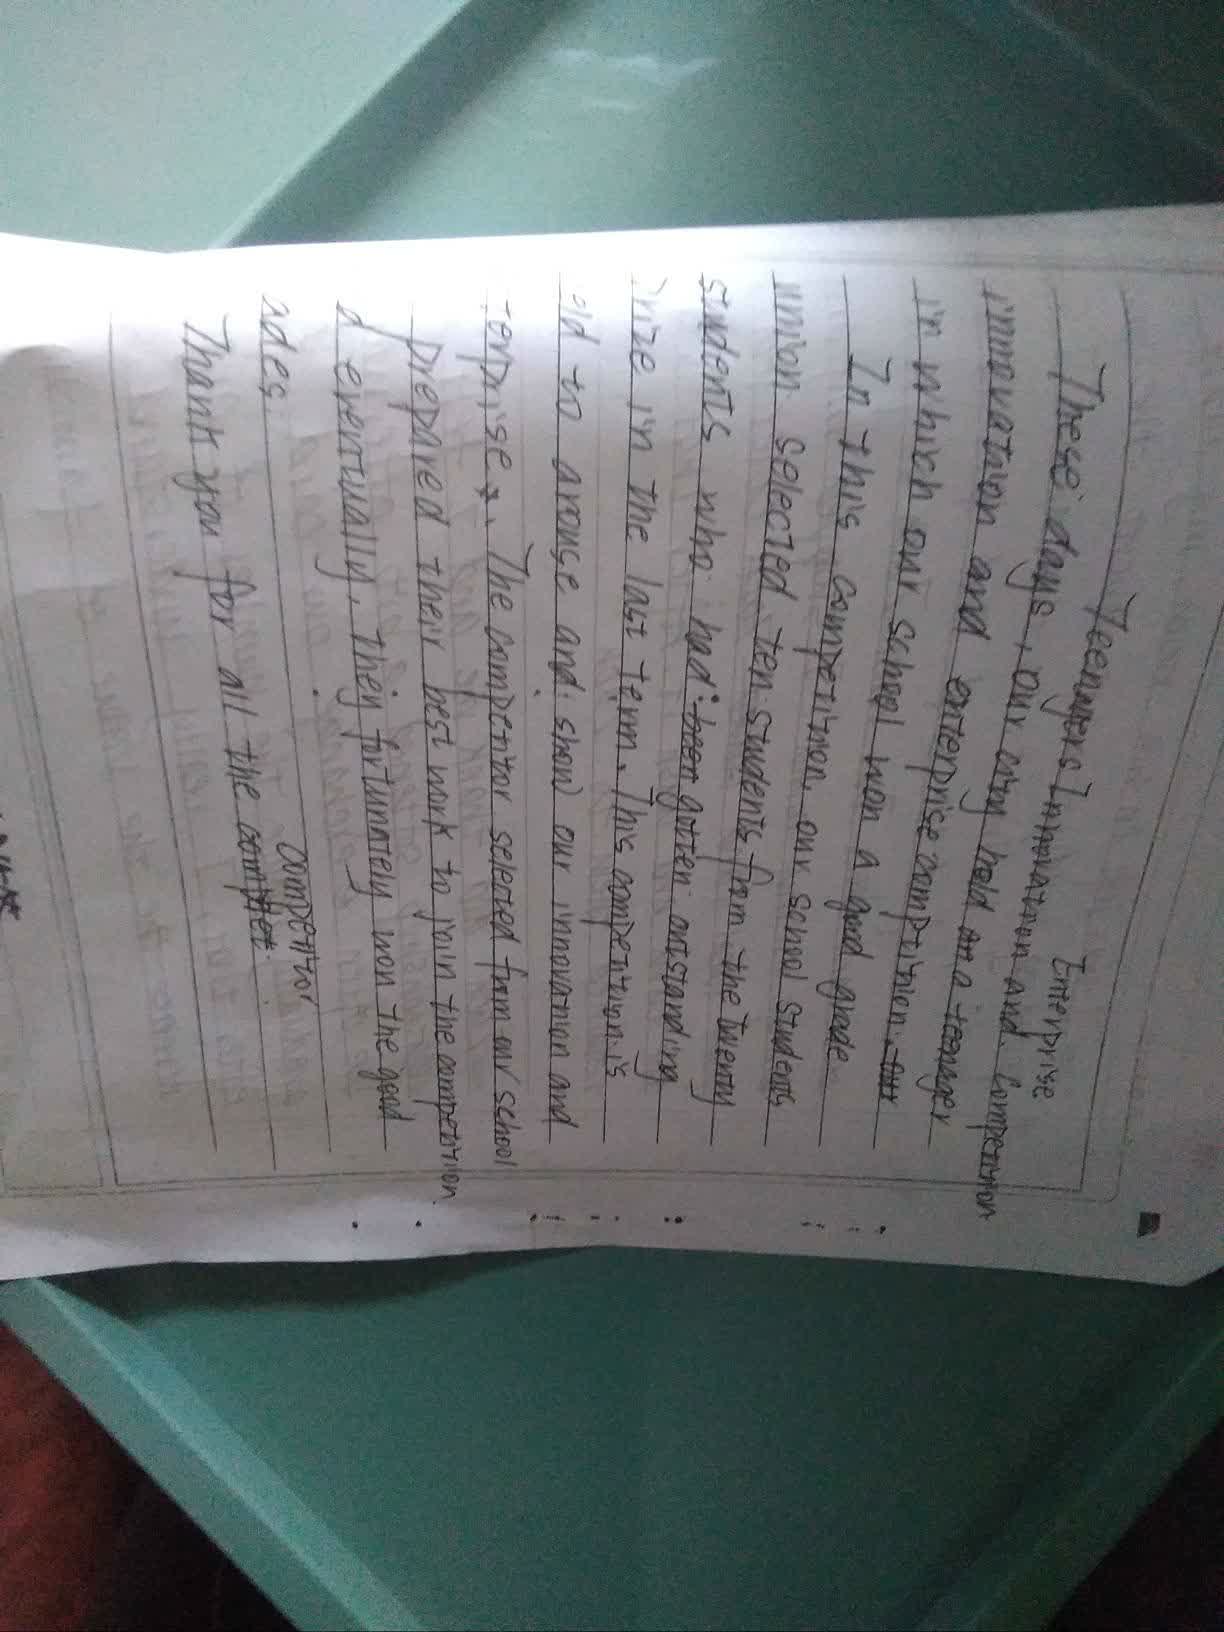 Teengers Innovation and Enterprise Competition
These days, our city held an a teenager
innovation and enterprise comptition. Our
in which our school won a good grade
In this competition, our school students
union selected ten students from the twenty
students who had been gotten outstanding
rize in the last term. This competition is
eld to arouse and show our innovation and
terprise. The competitor selected from our school
prepared their best work to join the competition.
d eventually, they fortunately won the good
ades.
competitor
Thank you for all the